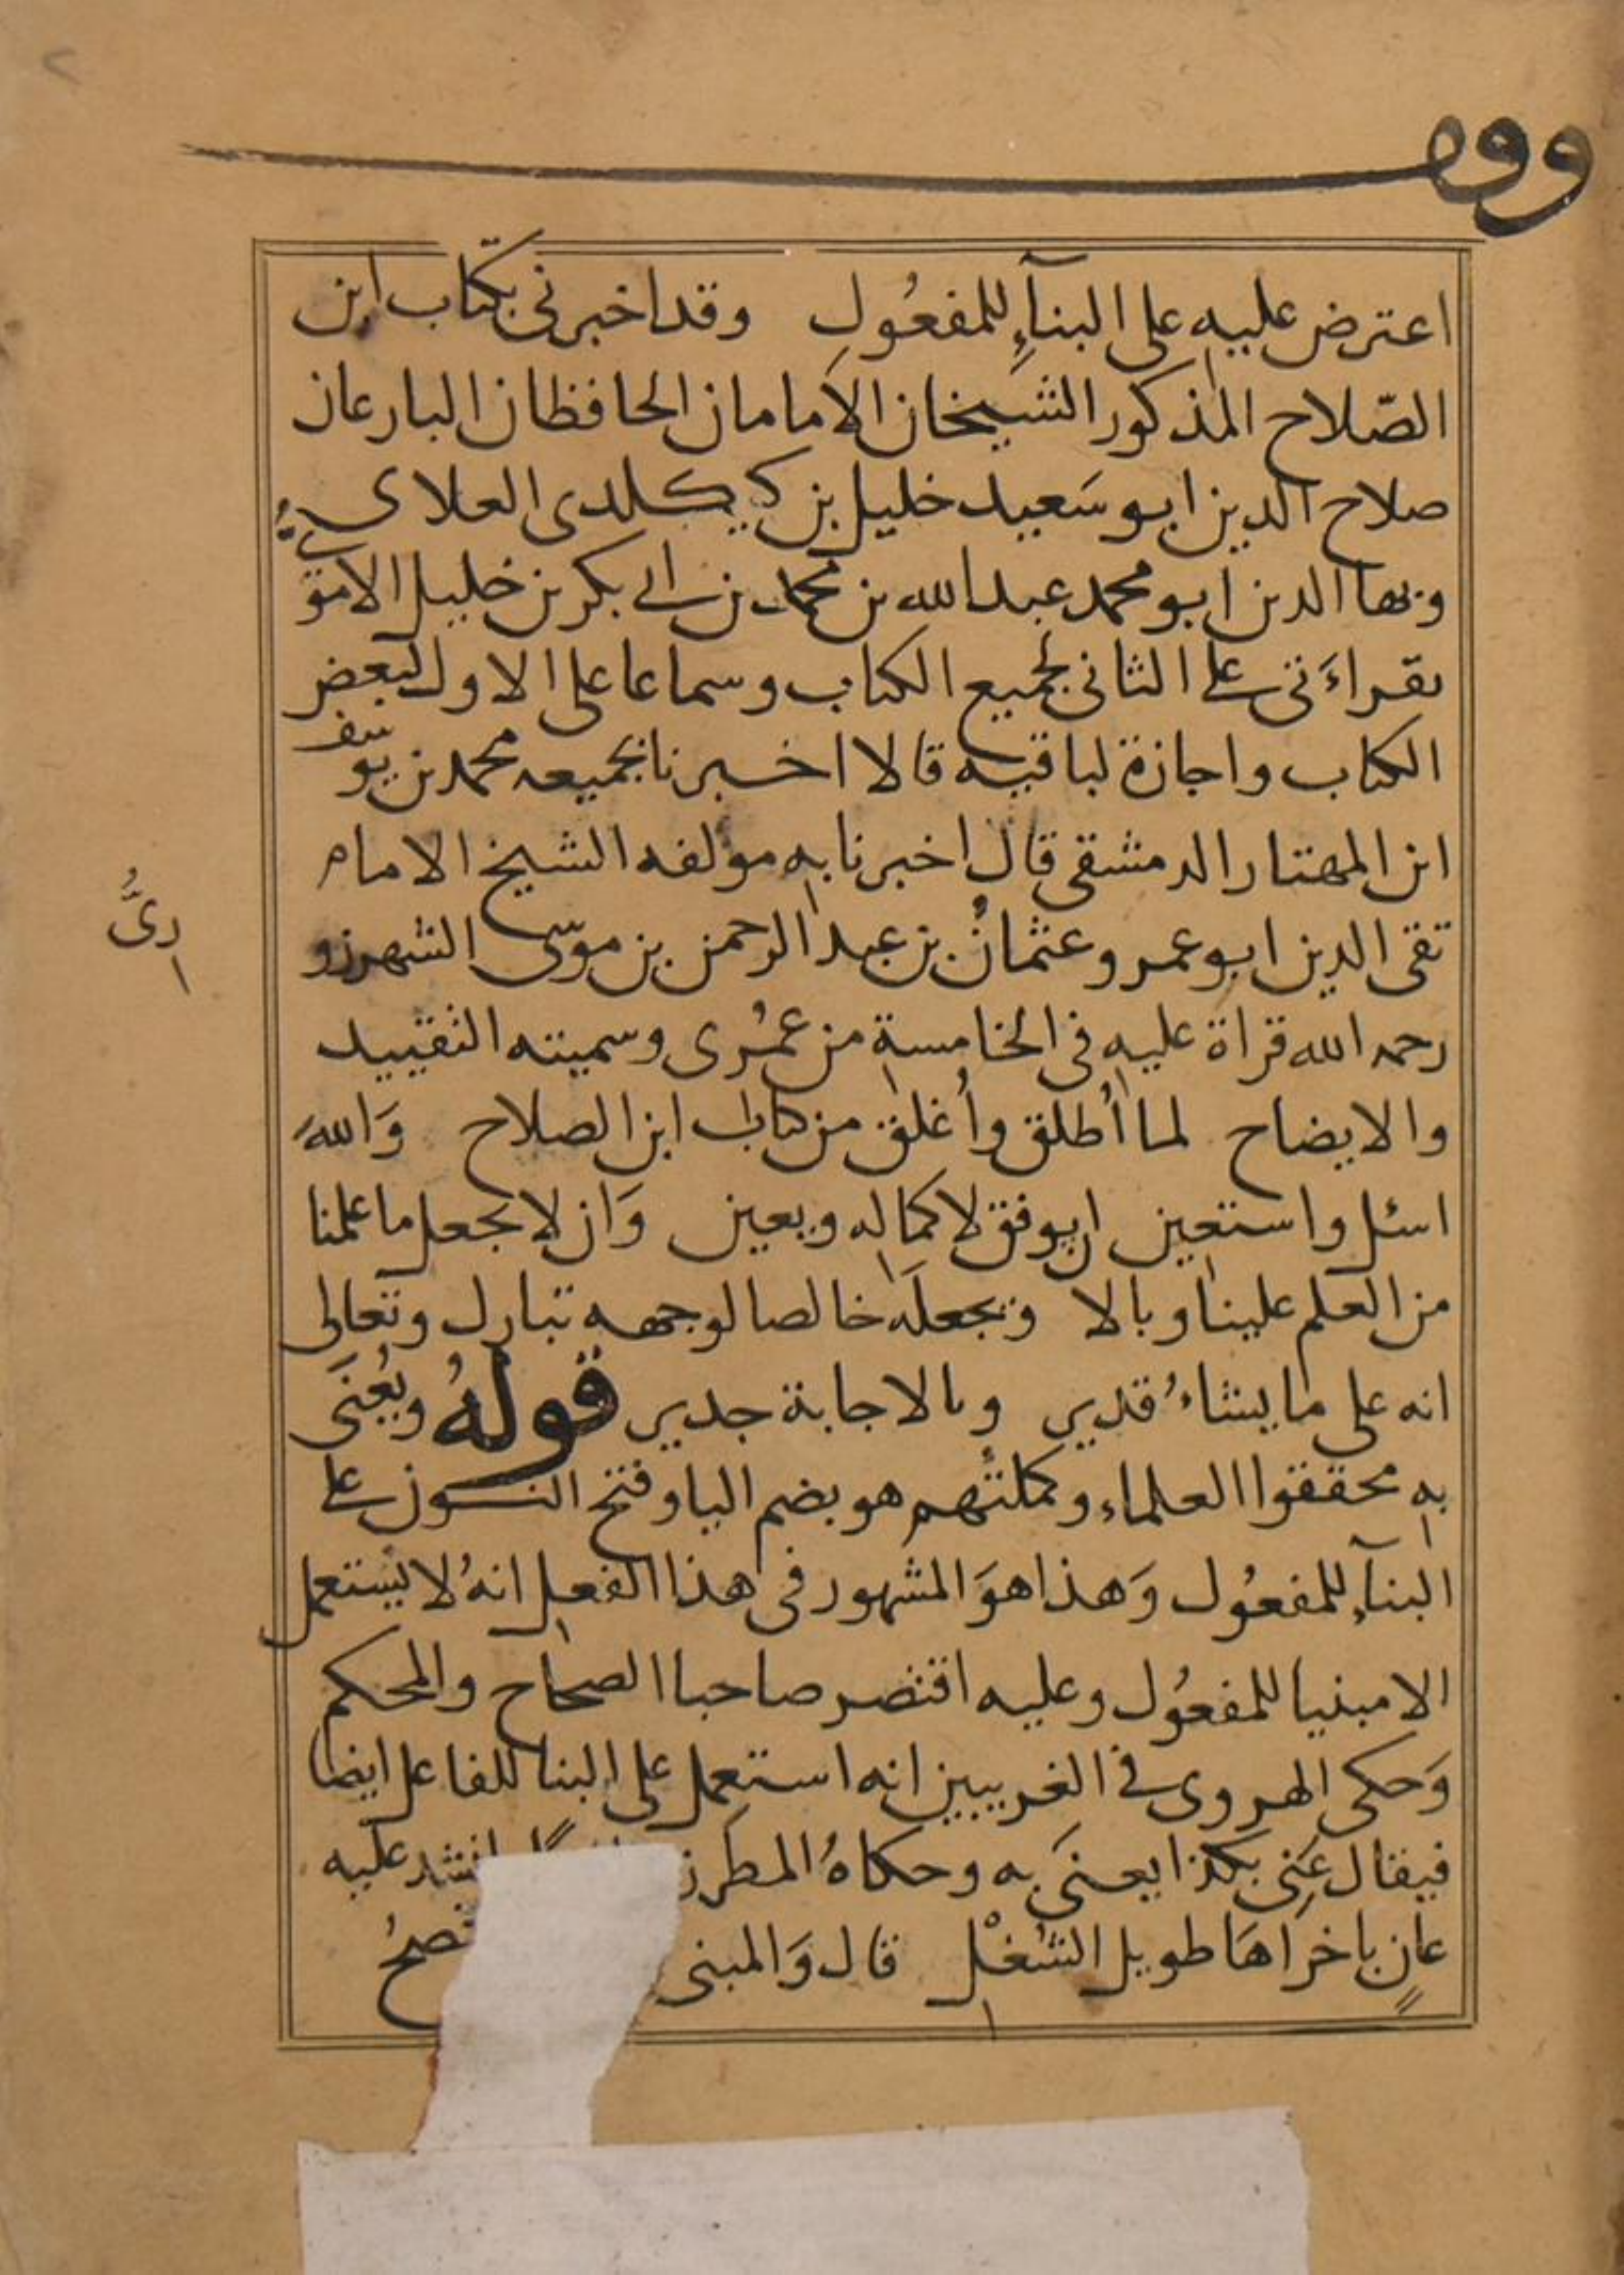 وقف
اعترض عليه على البنآءِ للمفعُولِ وقد اخبرنى بكتاب ابن
الصّلاح المذكور الشيخان الامامان الحافظان البارعان
صلاح الدين ابو سَعيد خليل بن كيكلدى العلاىُّ
وبها الدين ابو محمد عبد الله بن محمد بن ابى بكر بن خليل الاموى
بقراءَتى على الثانى لجميع الكتاب وسماعا على الاول لبعض
الكتاب واجازة لباقيه قالا اخبرنا بجميعه محمد بن يوسف
ابن المهتار الدمشقى قال اخبرنا به مولفه الشيخ الامام
تقى الدين ابو عمرو عثمانُ بن عبد الرحمن بن موسى الشهرزو
رىُّ
رحمه الله قراة عليه فى الخامسة من عمُرى وسميته التقييد
والايضاح لما اُطلق واُغلق من كتاب ابن الصلاح وَاللهَ
اسئل واستعين ان يوفق لاكماله ويعين وَان لا يجعل ما علمنا
من العلم علينا وبالا ويجعلَه خالصا لوجهه تبارك وتعالى
انه على ما يشاءُ قدير وبالاجابة جدير قولهُ ويُعنَى
به محققوا العلماء وكملتُهم هو بضم اليا وفتح النون على
البنآءِ للمفعُول وَهذا هوَ المشهور فى هذا الفعل انهُ لا يستعمل
الا مبنيا للمفعُول وعليه اقتصر صاحبا الصحاح والمحكم
وَحكى الهروى فى الغريبين انه استعمل على البنا للفاعل ايضا
فيقال عَنِى بكذا يعنَى به وحكاهُ المطرز انشد عليه
عانٍ باخراهَا طويل الشُغْلِ قال وَالمبنى